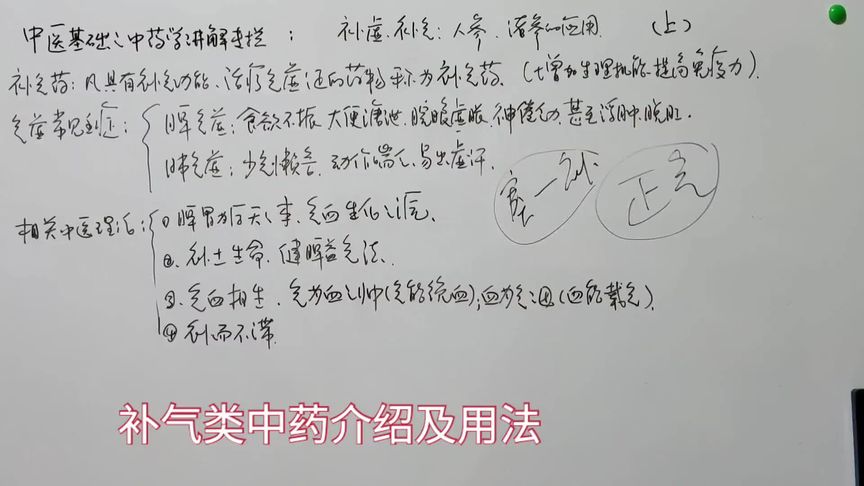 中医基础之中药学讲解专栏： 补虚.补气：人参、潞参的应用. （上）
补气药：凡具有补气功能、治疗气虚证的药物称为补气药.（增加生理机能.提高免疫力）.
气虚常见到症：
脾气虚：食欲不振.大便溏泄.脘腹虚胀.神倦乏力.甚至浮肿.脱肛.
肺气虚：少气懒言、动作喘乏.易出虚汗.
虚一补
正气
相关中医理论：
①脾胃为后天之本、气血生化之源.
②、补土生金.健脾益气法.
③、气血相生.气为血之帅（气能统血）；血为气之母（血能载气）.
④补而不滞.
补气类中药介绍及用法